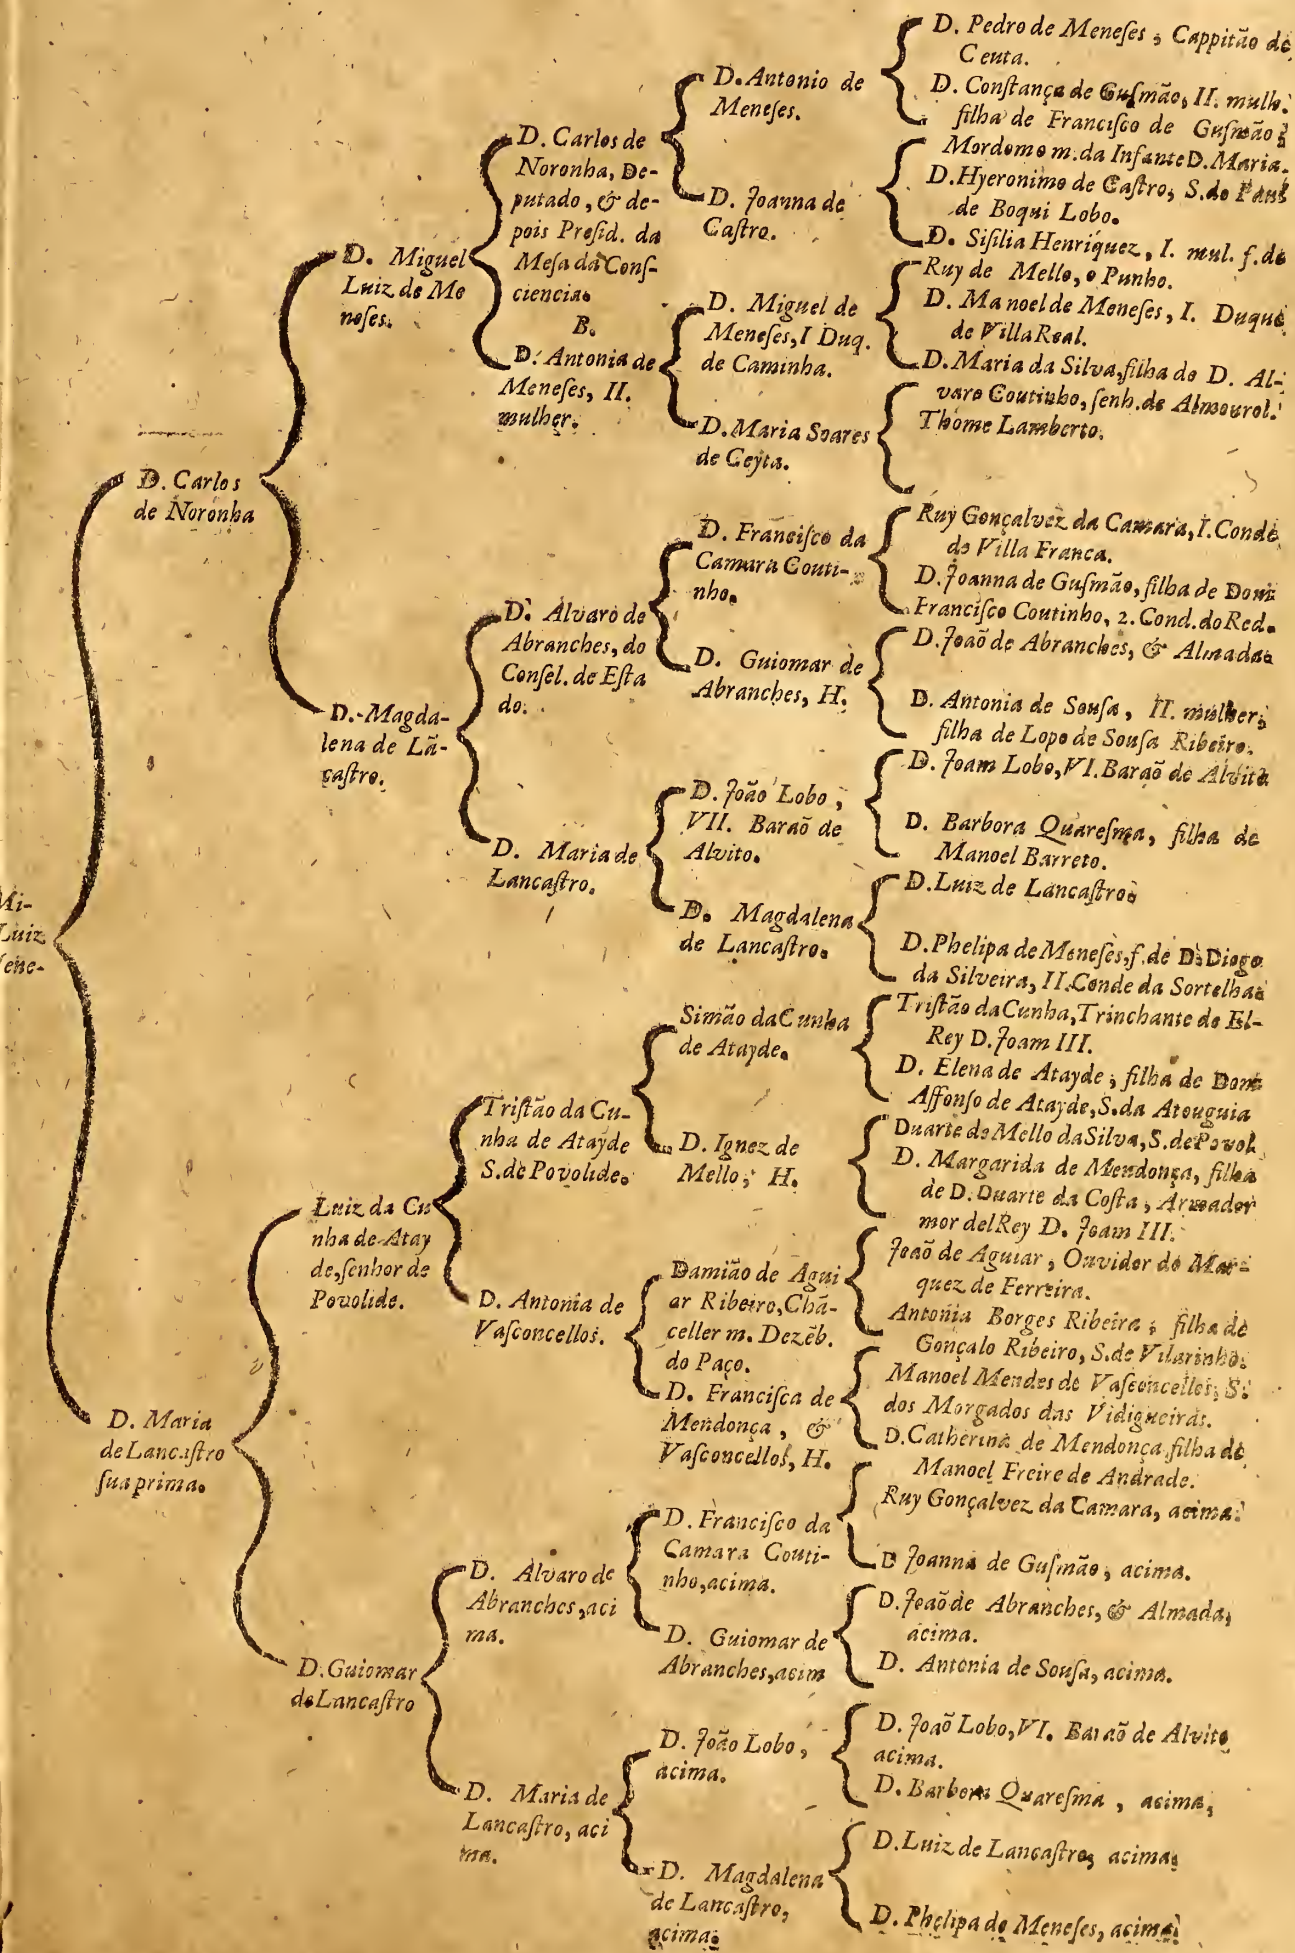 Mi-
Luiz
Mene-
D. Carlos
de Noronha
D. Maria
de Lancaſtro
ſua prima.
D. Miguel
Luiz de Me
neſes.
D. Magda-
lena de Lã-
çaſtro.
Luiz da Cu
nha de Atay
de, ſenhor de
Povolide.
D. Guiomar
de Lancaſtro
D. Carlos de
Noronha, De-
putado, & de-
pois Preſid. da
Meſa da Conſ-
ciencia.
B.
D. Antonia de
Meneſes, II.
mulher.
D. Alvaro de
Abranches, do
Conſel. de Eſta
do.
D. Maria de
Lancaſtro.
Triſtão da Cu-
nha de Atayde
S. de Povolide.
D. Antonia de
Vaſconcellos.
D. Alvaro de
Abranches, aci
ma.
D. Maria de
Lancaſtro, aci
ma.
D. Antonio de
Meneſes.
D. Joanna de
Caſtro.
D. Miguel de
Meneſes, I Duq.
de Caminha.
D. Maria Soares
de Ceyta.
D. Franciſco da
Camara Couti-
nho.
D. Guiomar de
Abranches, H.
D. João Lobo,
VII. Baraõ de
Alvito.
D. Magdalena
de Lancaſtro.
Simão da Cunha
de Atayde.
D. Ignez de
Mello, H.
Damião de Agui
ar Ribeiro, Chã-
celler m. Dezẽb.
do Paço.
D. Franciſca de
Mendonça, &
Vaſconcellos, H.
D. Franciſco da
Camara Couti-
nho, acima.
D. Guiomar de
Abranches, acim
D. João Lobo,
acima.
D. Magdalena
de Lancaſtro,
acima.
D. Pedro de Meneſes, Cappitão de
Ceuta.
D. Conſtança de Guſmão, II. mulh.
filha de Franciſco de Guſmão,
Mordomo m. da Infante D. Maria.
D. Hyeronimo de Caſtro, S. do Paul
de Boqui Lobo.
D. Siſilia Henriquez, I. mul. f. de
Ruy de Mello, o Punho.
D. Manoel de Meneſes, I. Duque
de Villa Real.
D. Maria da Silva, filha de D. Al-
varo Coutinho, ſenh. de Almourol.
Thome Lamberto.
Ruy Gonçalvez da Camara, I. Conde
de Villa Franca.
D. Joanna de Guſmão, filha de Dom
Franciſco Coutinho, 2. Cond. do Red.
D. Joaõ de Abranches, & Almada.
D. Antonia de Souſa, II. mulher,
filha de Lopo de Souſa Ribeiro.
D. Joam Lobo, VI. Baraõ de Alvito
D. Barbora Quareſma, filha de
Manoel Barreto.
D. Luiz de Lancaſtro.
D. Phelipa de Meneſes, f. de D. Diogo
da Silveira, II. Conde da Sortelha.
Triſtão da Cunha, Trinchante de El-
Rey D. Joam III.
D. Elena de Atayde, filha de Dom
Affonſo de Atayde, S. da Atouguia
Duarte de Mello da Silva, S. de Povol.
D. Margarida de Mendonça, filha
de D. Duarte da Coſta, Armador
mor delRey D. Joam III.
Joaõ de Aguiar, Ouvidor do Mar-
quez de Ferreira.
Antonia Borges Ribeira, filha de
Gonçalo Ribeiro, S. de Vilarinho.
Manoel Mendes de Vaſconcelles, S.
dos Morgados das Vidigueiras.
D. Catherina de Mendonça filha de
Manoel Freire de Andrade.
Ruy Gonçalvez da Camara, acima.
D Joanna de Guſmão, acima.
D. Joaõ de Abranches, & Almada,
acima.
D. Antonia de Souſa, acima.
D. Joaõ Lobo, VI. Baraõ de Alvito
acima.
D. Barbora Quareſma, acima,
D. Luiz de Lancaſtro, acima.
D. Phelipa de Meneſes, acima.